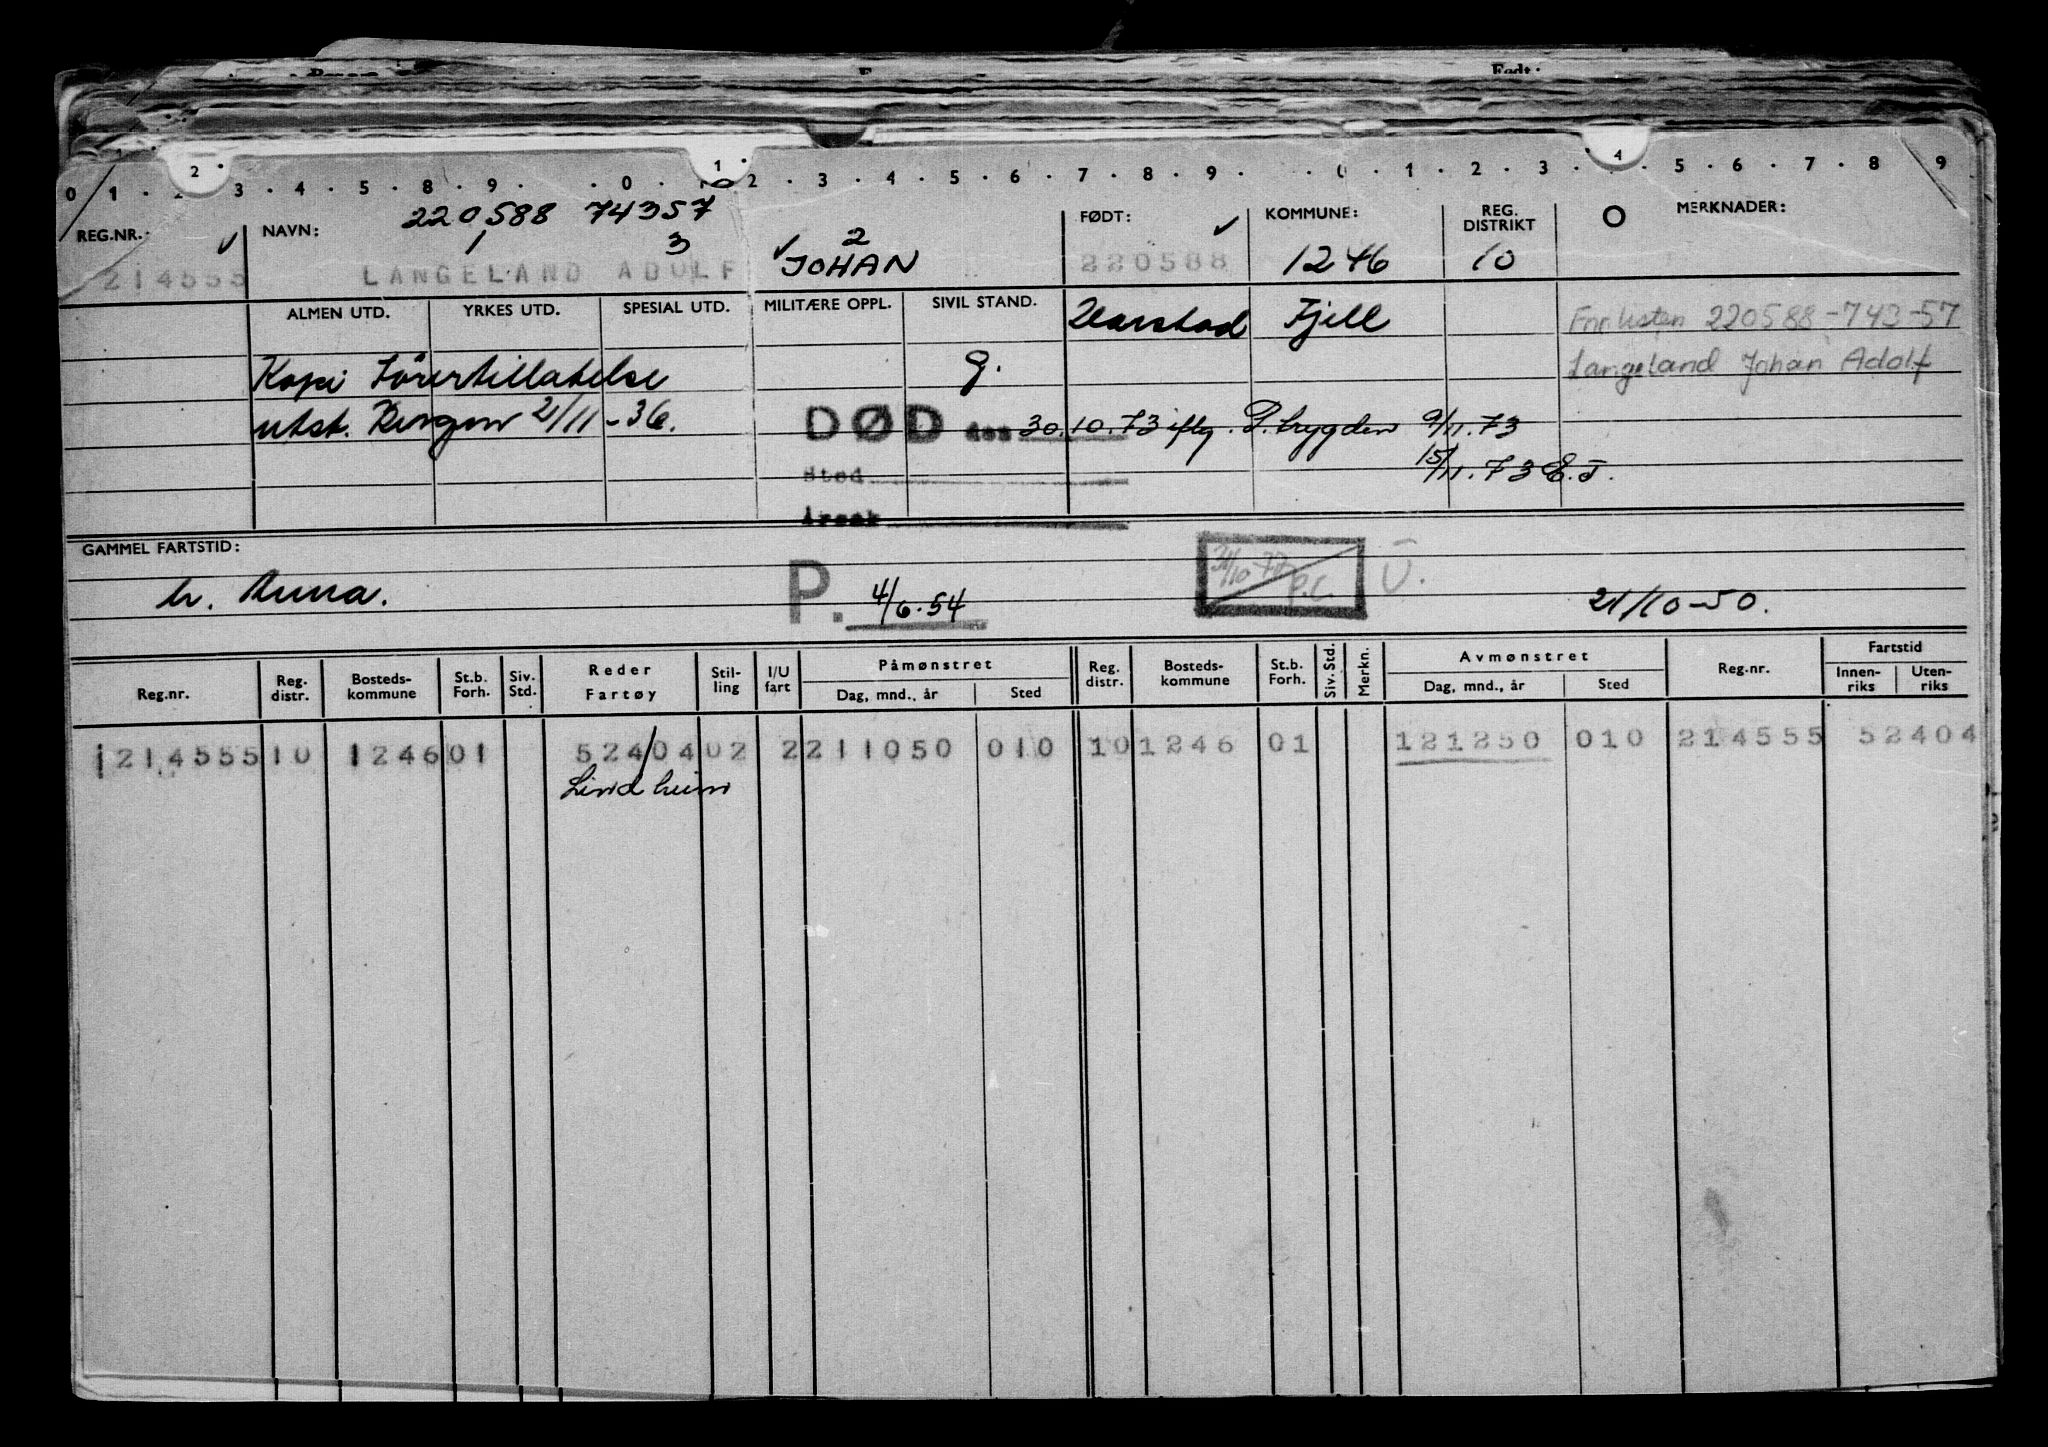 Født:
0 1 . 2 . 3 . 4 . 5 . 8 . 9 . . 0 . 1 2 . 3 . 4 . 5 . 6 . 7 . 8 . 9 . . 0 . 1 . 2 . 3 . 4 . 5 . 6 . 7 . 8 . 9
220588 74357
REG.NR.: NAVN: FØDT: KOMMUNE: REG. DISTRIKT O MERKNADER:
1 3 2
214555 LANGELAND ADOLF JOHAN 220588 1246 10
ALMEN UTD. YRKES UTD. SPESIAL UTD. MILITÆRE OPPL. SIVIL STAND.
Harstad Fjell Fnrlisten 220588-743-57
Kopi Førertillatelse g. Langeland Johan Adolf
utst. Bergen 21/11-36. DØD den 30.10.73 iflg. P.trygden 9/11.73
Sted 15/11.73 E.T.
Årsak
GAMMEL FARTSTID:
h. Anna. P. 4/6.54 P.C. Ū. 21/10-50.
Reg.nr. Reg. distr. Bosteds-kommune St.b. Forh. Siv. Std. Reder Fartøy Stil-ling I/U fart Påmønstret Dag, mnd., år Sted Reg. distr. Bosteds-kommune St.b. Forh. Siv. Std. Merkn. Avmønstret Dag, mnd., år Sted Reg.nr. Fartstid Innen-riks Uten-riks
1214555 10 1246 01 52404 02 2 211050 010 10 1246 01 121250 010 214555 52404
Lindheim